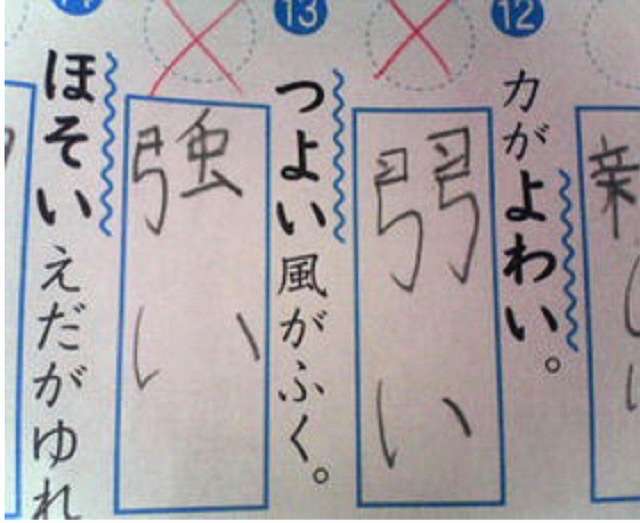 新しい
12
力がよわい。
弱い
13
つよい風がふく。
強い
ほそいえだがゆれ